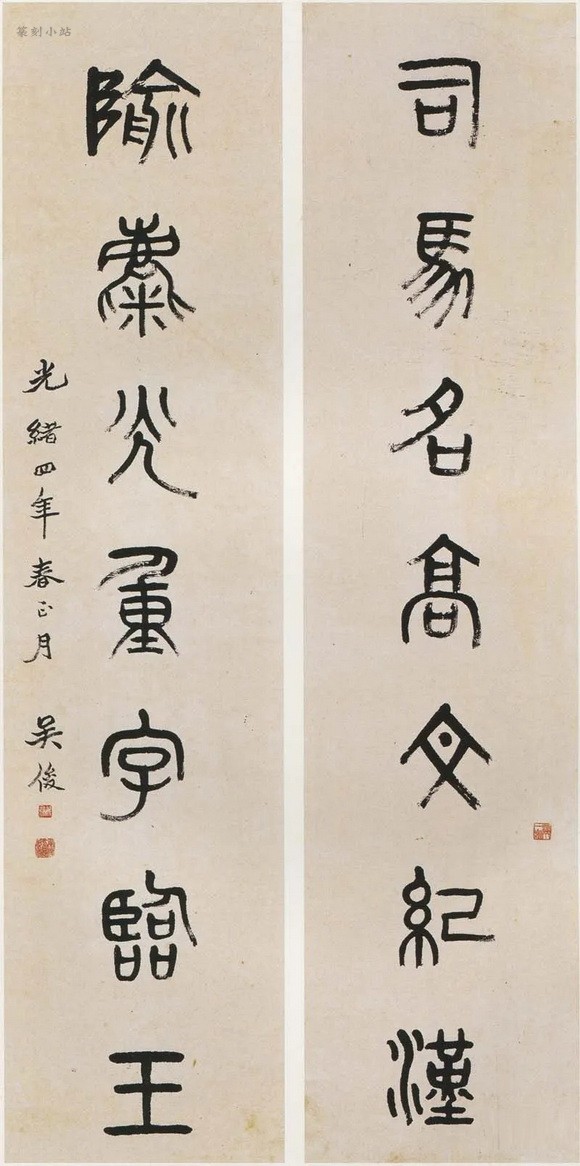 篆刻小站
司馬名高文紀漢
隃麋光重字臨王
光緒四年春正月 吳俊